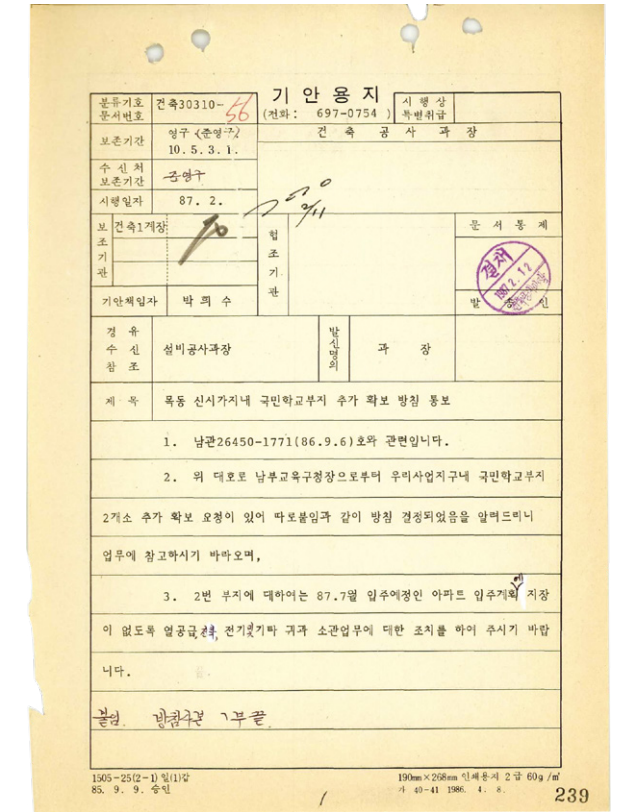 기 안 용 지
분류기호 문서번호 건축30310-56
(전화: 697-0754 )
시 행 상 특별취급
보존기간 영구 (준영구) 10. 5. 3. 1.
건 축 공 사 과 장
수 신 처 보존기간 준영구
시행일자 87. 2.
2/11
보조기관 건축1계장
협조기관
문 서 통 제
결재 1987. 2. 12
기안책임자 박 희 수
발 송 인
경 유 수 신 참 조 설비공사과장
발신명의 과 장
제 목 목동 신시가지내 국민학교부지 추가 확보 방침 통보
1. 남관26450-1771(86.9.6)호와 관련입니다.
2. 위 대호로 남부교육구청장으로부터 우리사업지구내 국민학교부지
2개소 추가 확보 요청이 있어 따로붙임과 같이 방침 결정되었음을 알려드리니
업무에 참고하시기 바라오며,
3. 2번 부지에 대하여는 87.7월 입주예정인 아파트 입주계획에 지장
이 없도록 열공급, 전기 및 기타 귀과 소관업무에 대한 조치를 하여 주시기 바랍
니다.
붙임 방침사본 1부 끝
1505-25(2-1) 일(1)갑
85. 9. 9. 승인
190㎜×268㎜ 인쇄용지 2급 60g/㎡
가 40-41 1986. 4. 8.
1
239